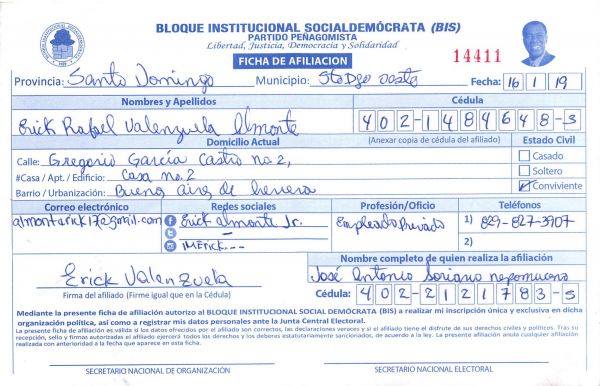 BLOQUE INSTITUCIONAL SOCIALDEMÓCRATA (BIS)
PARTIDO PEÑAGOMISTA
Libertad, Justicia, Democracia y Solidaridad
FICHA DE AFILIACION
14411
Provincia: Santo Domingo Municipio: Sto Dgo oeste Fecha: 16 1 19
Nombres y Apellidos Cédula
Erick Rafael Valenzuela Almonte 402-1484648-3
Domicilio Actual (Anexar copia de cédula del afiliado) Estado Civil
Calle: Gregorio García Castro no. 2, Casado
#Casa / Apt. / Edificio: Casa no. 2 Soltero
Barrio / Urbanización: Buenos aires de herrera Conviviente
Correo electrónico Redes sociales Profesión/Oficio Teléfonos
almonterick17@gmail.com Erick almonte Jr. Empleado Privado 1) 829-827-3907
2)
Nombre completo de quien realiza la afiliación
Erick Valenzuela José Antonio Soriano nepomuceno
Firma del afiliado (Firme igual que en la Cédula) Cédula: 402-2121783-5
Mediante la presente ficha de afiliación autorizo al BLOQUE INSTITUCIONAL SOCIAL DEMÓCRATA (BIS) a realizar mi inscripción única y exclusiva en dicha
organización política, así como a registrar mis datos personales ante la Junta Central Electoral.
La presente ficha de afiliación es válida si los datos ofrecidos por el afiliado son correctos, las declaraciones veraces y si el afiliado tiene el disfrute de sus derechos civiles y políticos. Tras su
recepción, sello y firmas autorizadas el afiliado ejercerá todos los derechos y los deberes estatutariamente sancionados, de acuerdo a la ley. La presente afiliación anula cualquier afiliación
realizada con anterioridad a la fecha que aparece en esta ficha.
SECRETARIO NACIONAL DE ORGANIZACIÓN SECRETARIO NACIONAL ELECTORAL